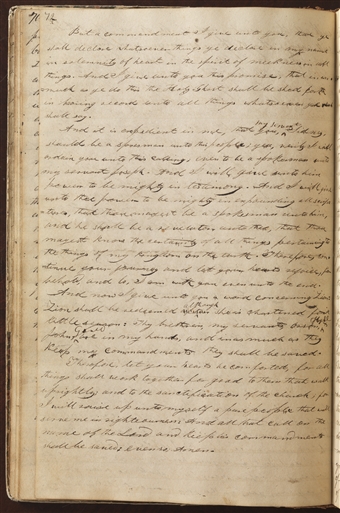 But a commandment I give unto you, that ye
shall declare whatsoever things ye declare in my name
in solemnity of heart in the spirit of meekness in all
things. And I give unto you this promise, that in as
much as ye do this the Holy Ghost shall be shed forth
in bearing record unto all things whatsoever ye
shall say.
And it is expedient in me, that you, my servant Sidney
should be a spokesman unto this people, yea, verily I will
ordain you unto this calling, even to be a spokesman unto
my servant Joseph. And I will give unto him
power to be mighty in testimony. And I will give
unto thee power to be mighty in expounding all scrip
tures, that thou mayest be a spokesman unto him,
and he shall be a revelator unto thee, that thou
mayest know the certainty of all things pertaining to
the things of my kingdom on the earth. Therefore con
tinue your journey and let your hearts rejoice, for
behold, and lo, I am with you even unto the end.
And now I give unto you a word concerning Zion
Zion shall be redeemed although she is chastened for a
little season: Thy brethren, my servants Orson
Johnson are in my hands, and inasmuch as they
keep my commandments they shall be saved.
Therefore, let your hearts be comforted, for all
things shall work together for good to them that walk
uprightly and to the sanctification of the church, for
I will raise up unto myself a pure people that will
serve me in righteousness. And all that call on the
name of the Lord and keep his commandments
shall be saved; even so Amen.